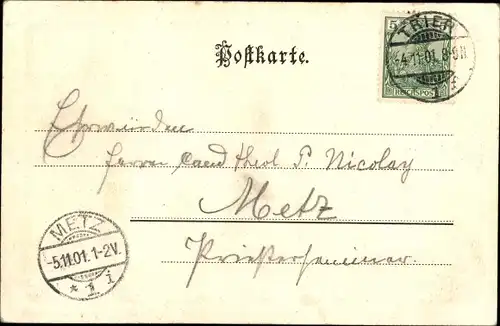 5
TRIER
-4.11.01. 8-9N
1 f
REICHSPOST
Postkarte.
Ehrwürden
Herrn Cand theol P. Nicolay
Metz
Priesterseminar
METZ
-5.11.01. 1-2V.
* 1 i